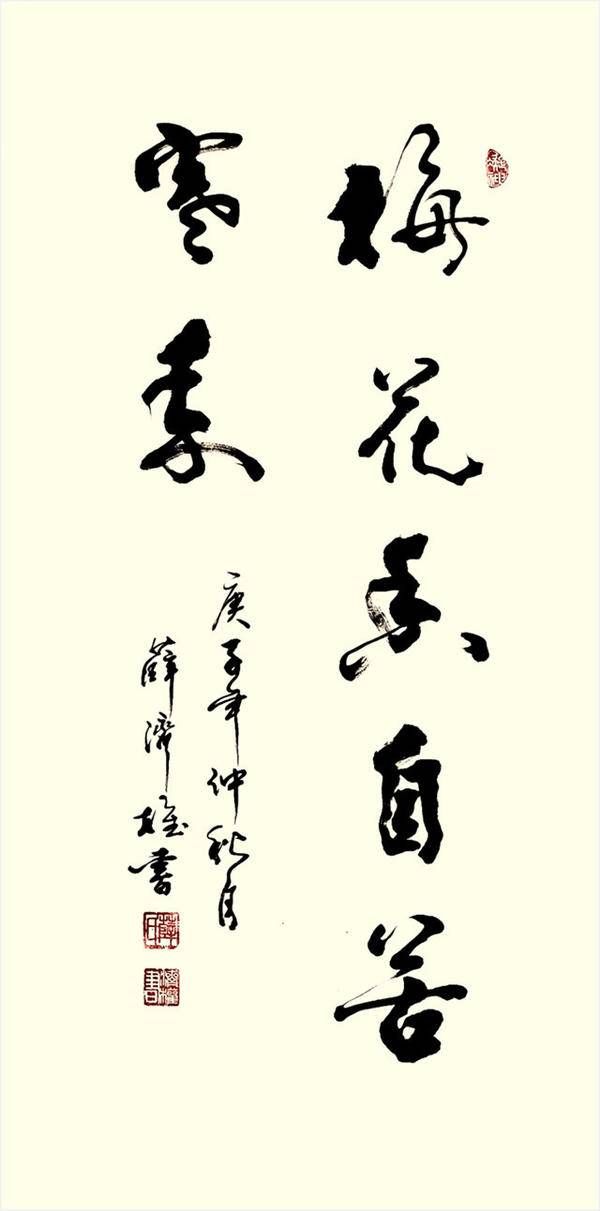 梅花香自苦
寒来
庚子年仲秋月
薛濟雄書